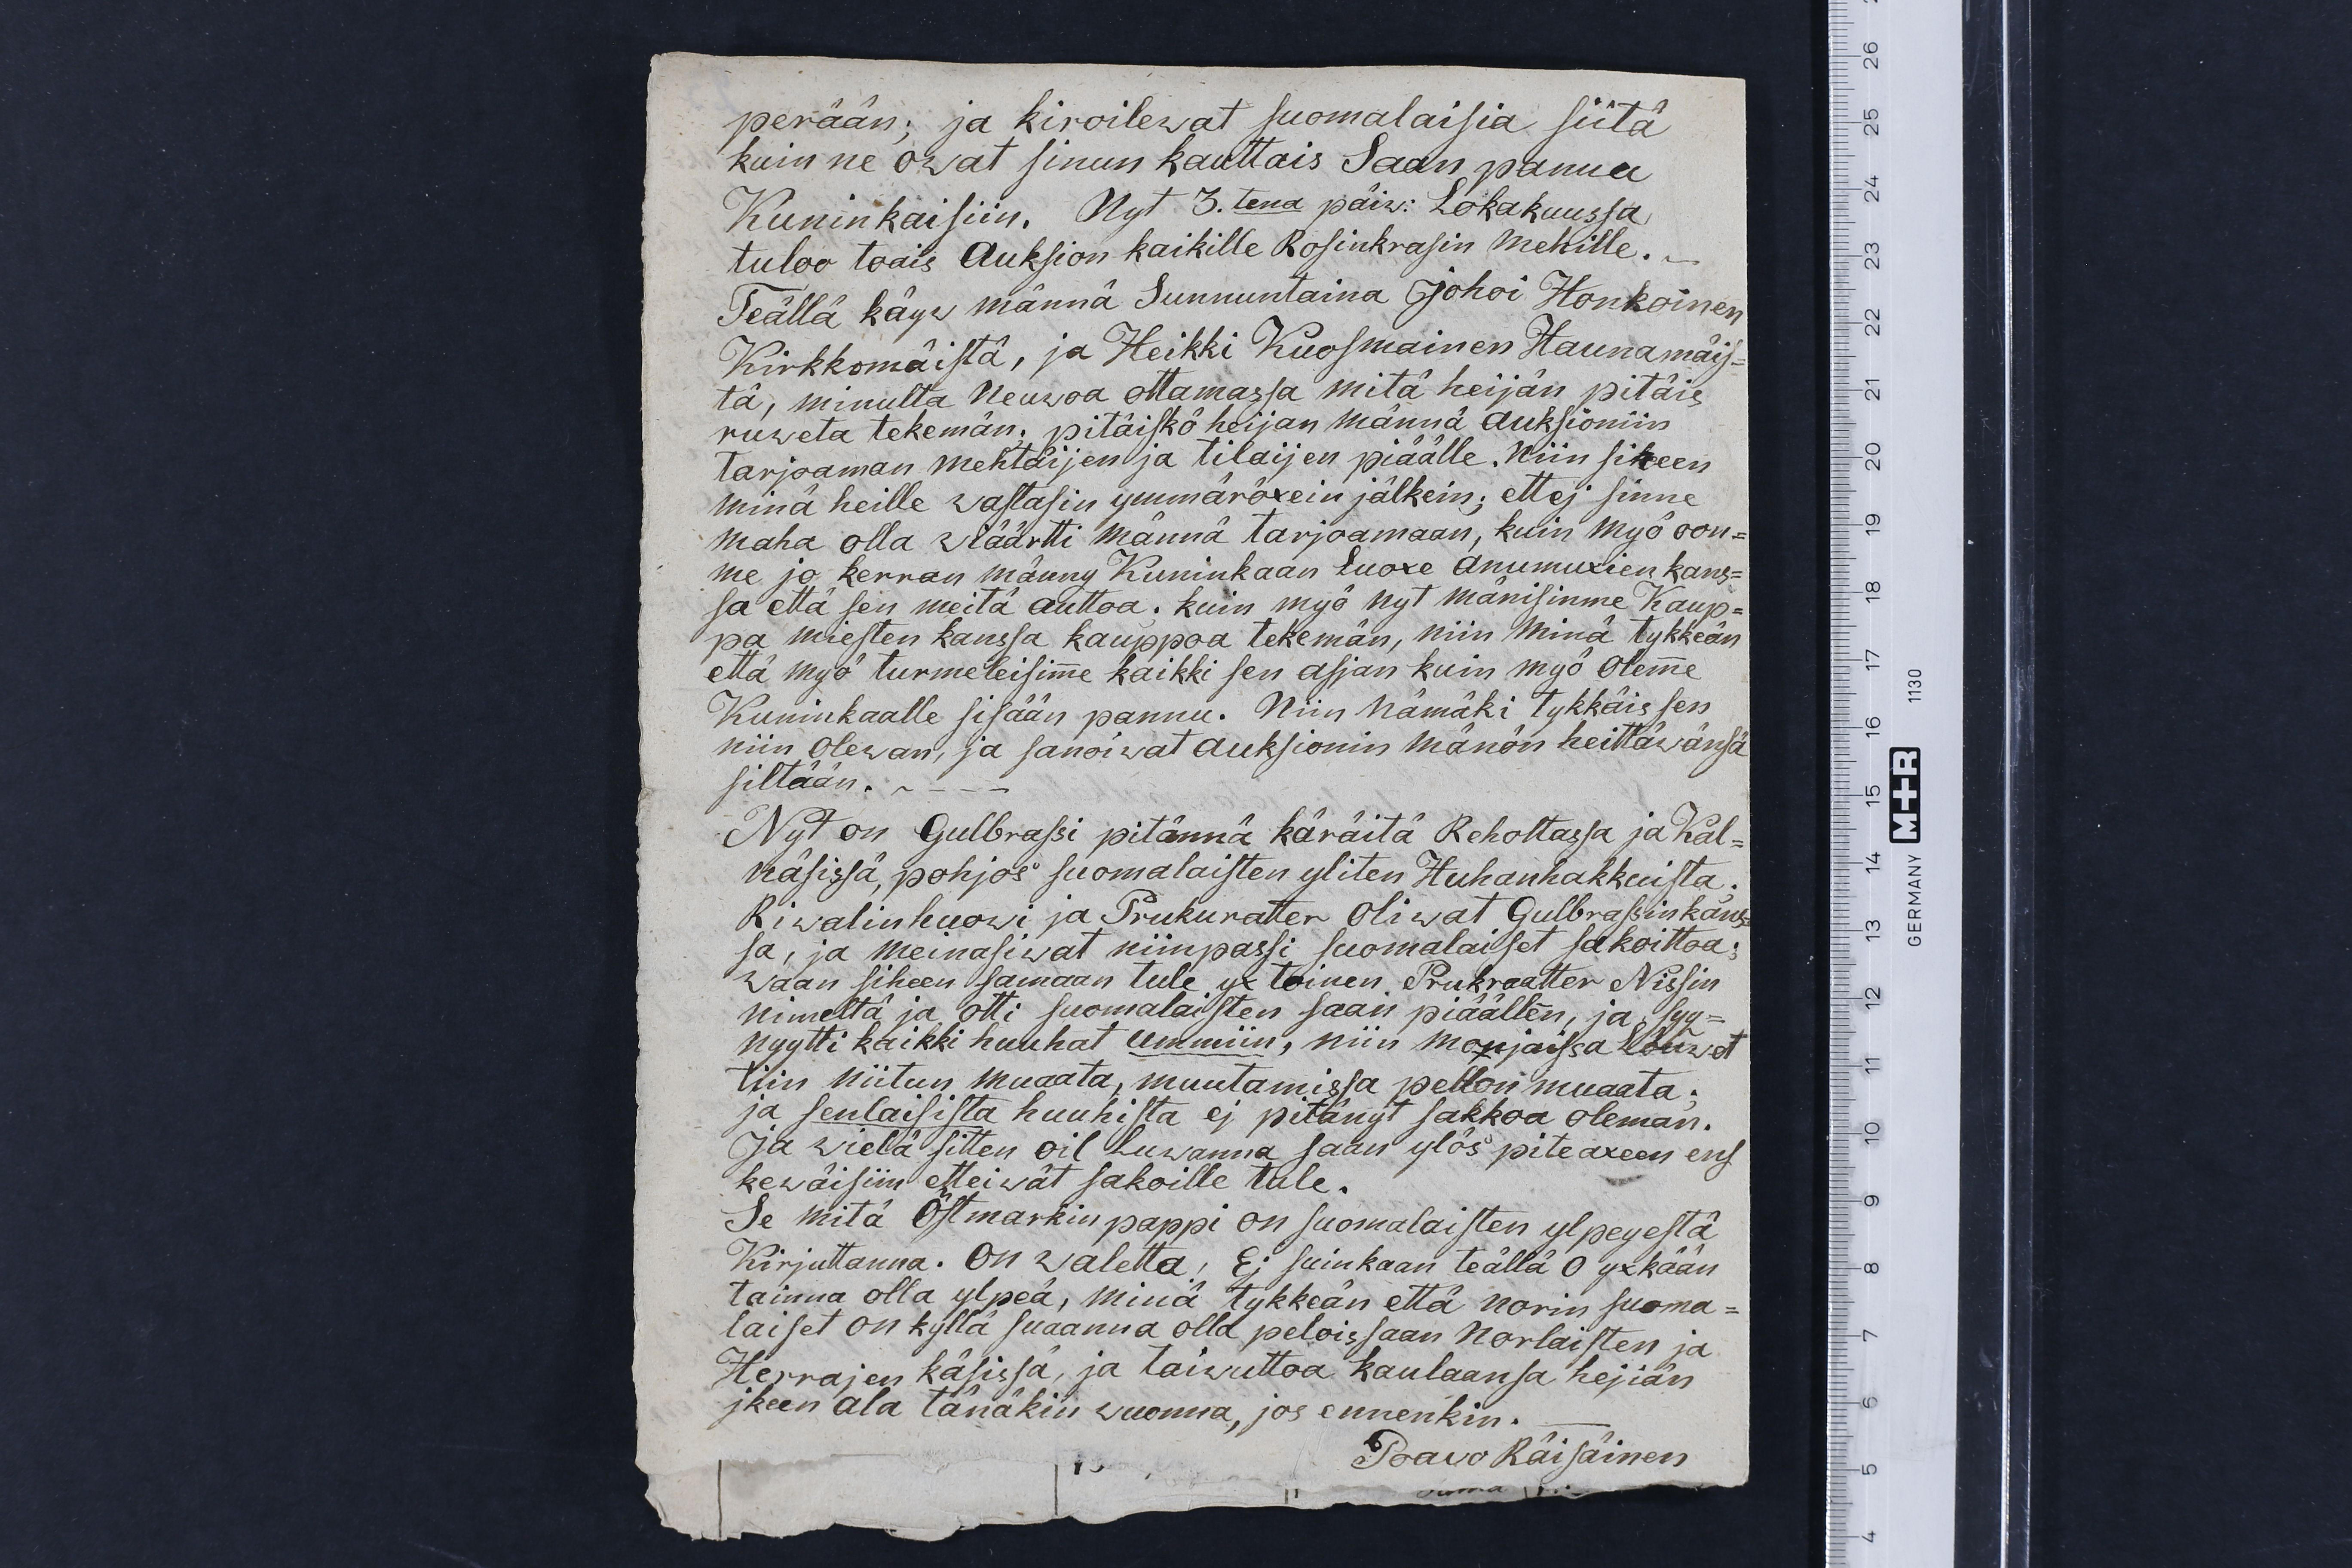 perään; ja kiroilewat suomalaisia siitä
kuin ne owat sinun kauttais Saan pannu
Kuninkaisiin. Nyt 3.tena päiw: Lokakuussa
tuloo toais Auksion kaikille Rosinkrasin Mehille. ~
Teällä käyw männä Sunnuntaina Johoi Honkoinen
Kirkkomäistä, ja Heikki Kuosmainen Haunamäis=
tä, minulta Neuwoa ottamassa mitä heijän pitäis
ruweta tekemän; pitäiskö heijan männä Auksioniin
tarjoaman mehtäijen ja tilaijen piäälle. Niin siheen
minä heille wastasin ymmäröxein jälkein; ett ej sinne
maha olla wläärtti männä tarjoamaan, kuin Myö oon=
me jo kerran männy Kuninkaan Luoxe Anumuxien kans=
sa että sen meitä auttoa. kuin myö nyt mänisinme Kaup=
pa miesten kanssa kauppoa tekemän, niin Minä tykkeän
että Myö turmeleisim̄e kaikki sen asjan kuin myö Olem̄e
Kuninkaalle sisään pannu. Niin Nämäki tykkäis sen
niin Olewan, ja sanoiwat Auksionin Mänön heittäwänsä
siltään. ~ - - -
Nyt on Gulbrassi pitännä käräitä Rehottassa ja Kal=
näsissä, pohjos suomalaisten yliten Huhanhakkuista.
Riwalinhuowi ja Prukuratter Oliwat Gulbrassin kans=
sa, ja Meinasiwat niinpassi suomalaiset sakoittoa;
waan siheen samaan tule yx toinen Prukraatter Nissin
nimeltä ja otti suomalaisten saan piäällen, ja syy=
nyytti kaikki huuhat Ummiin, niin monjaissa Löuwet
tiin niitun muaata, muutamissa pellon muaata;
ja senlaisista huuhista ej pitänyt sakkoa oleman.
Ja wielä sitten oil Luwanna saan ylös piteaxeen ens
kewäisiin etteiwät sakoille tule.
Se mitä Östmarkin pappi on suomalaisten ylpeyestä
Kirjuttanna. On waletta, Ej suinkaan teällä O yxkään
tainna olla ylpeä, minä tykkeän että norin suoma=
laiset on kyllä suaanna olla peloissaan Norlaisten ja
Herrajen käsissä, ja taiwuttoa kaulaansa hejiän
jkeen ala tänäkin wuonna, jos ennenkin.
Poavo Räisäinen
26
25
24
23
22
21
20
19
18
17
16
15
14
13
12
11
10
9
8
7
6
5
4
GERMANY M+R 1130